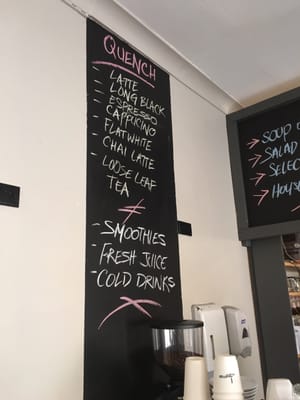 QUENCH
- LATTE
- LONG BLACK
- ESPRESSO
- CAPPUCINO
- FLAT WHITE
- CHAI LATTE
- LOOSE LEAF
TEA
- SMOOTHIES
- FRESH JUICE
- COLD DRINKS
SOUP
SALAD